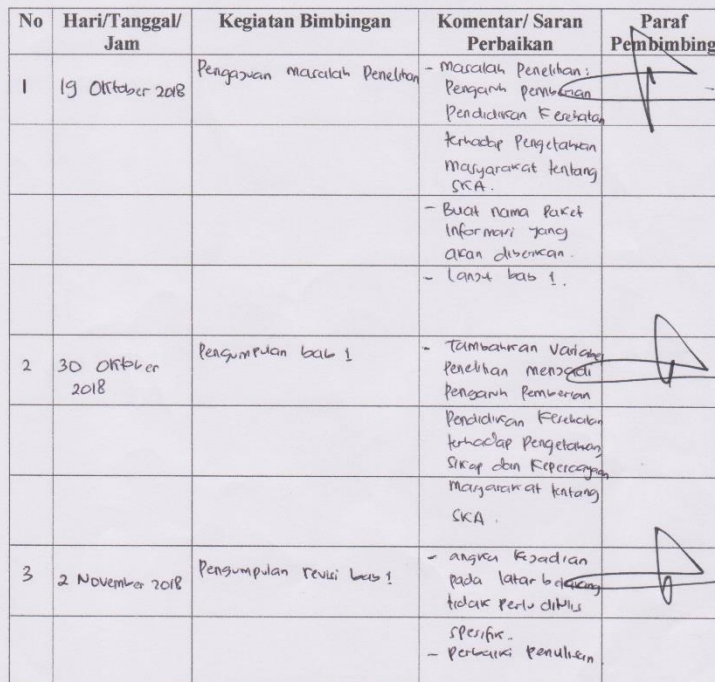 No Hari/Tanggal/ Kegiatan Bimbingan Komentar/ Saran Paraf
Jam Perbaikan Pembimbing
1 19 Oktober 2018 Pengajuan masalah Penelitian - Masalah Penelitian:
Pengaruh pemberian
Pendidikan Kesehatan
terhadap Pengetahuan
masyarakat tentang
SKA.
- Buat nama Paket
Informasi yang
akan diberikan.
- Lanjut bab 1.
2 30 Oktober Pengumpulan bab 1 - Tambahkan Variabel
2018 Penelitian menjadi
Pengaruh Pemberian
Pendidikan Kesehatan
terhadap Pengetahuan,
Sikap dan Kepercayaan
masyarakat tentang
SKA.
3 2 November 2018 Pengumpulan revisi bab 1 - angka kejadian
pada latar belakang
tidak perlu ditulis
spesifik.
- Perbaiki penulisan.